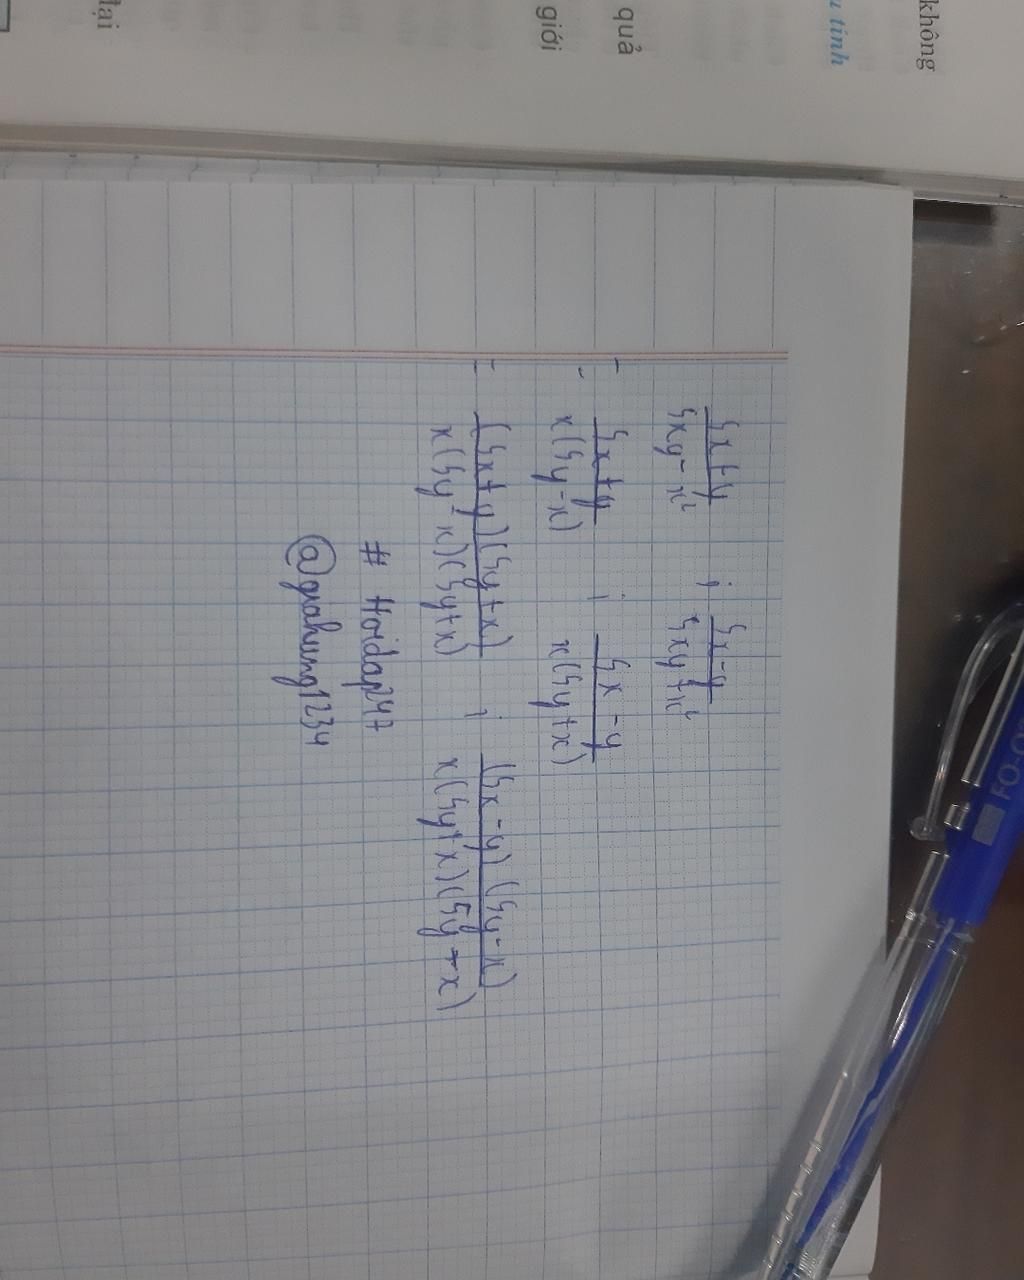 không
u tính
quả
giới
đại
5x + y / 5xy - x² ; 5x - y / 5xy + x²
= 5x + y / x(5y - x) ; 5x - y / x(5y + x)
= (5x + y)(5y + x) / x(5y - x)(5y + x) ; (5x - y)(5y - x) / x(5y + x)(5y - x)
# Hoidap247
@giahung1234
FO-0